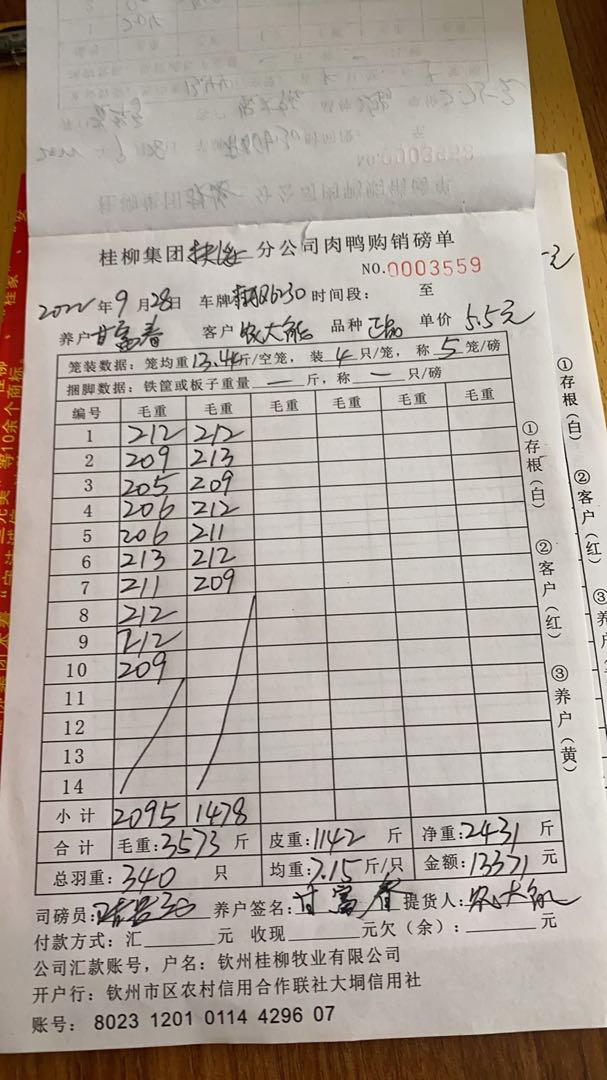 桂柳集团 分公司肉鸭购销磅单
NO.0003559
2022年9月28日 车牌 Q6230 时间段： 至
养户甘富春 客户农大能 品种正品 单价5.5元
笼装数据：笼均重13.44斤/空笼，装4只/笼，称5笼/磅
捆脚数据：铁筐或板子重量—斤，称—只/磅
编号 毛重 毛重 毛重 毛重 毛重 毛重
1 212 212
2 209 213
3 205 209
4 206 212
5 206 211
6 213 212
7 211 209
8 212
9 212
10 209
11
12
13
14
小计 2095 1478
合计 毛重:3573斤 皮重:1142斤 净重:2431斤
总羽重:340只 均重:7.15斤/只 金额:13371元
司磅员: 养户签名:甘富春 提货人:农大能
付款方式：汇 元 收现 元欠（余）: 元
公司汇款账号，户名：钦州桂柳牧业有限公司
开户行：钦州市区农村信用合作联社大垌信用社
账号： 8023 1201 0114 4296 07
①存根（白）
②客户（红）
③养户（黄）
①存根（白）
②客户（红）
③养